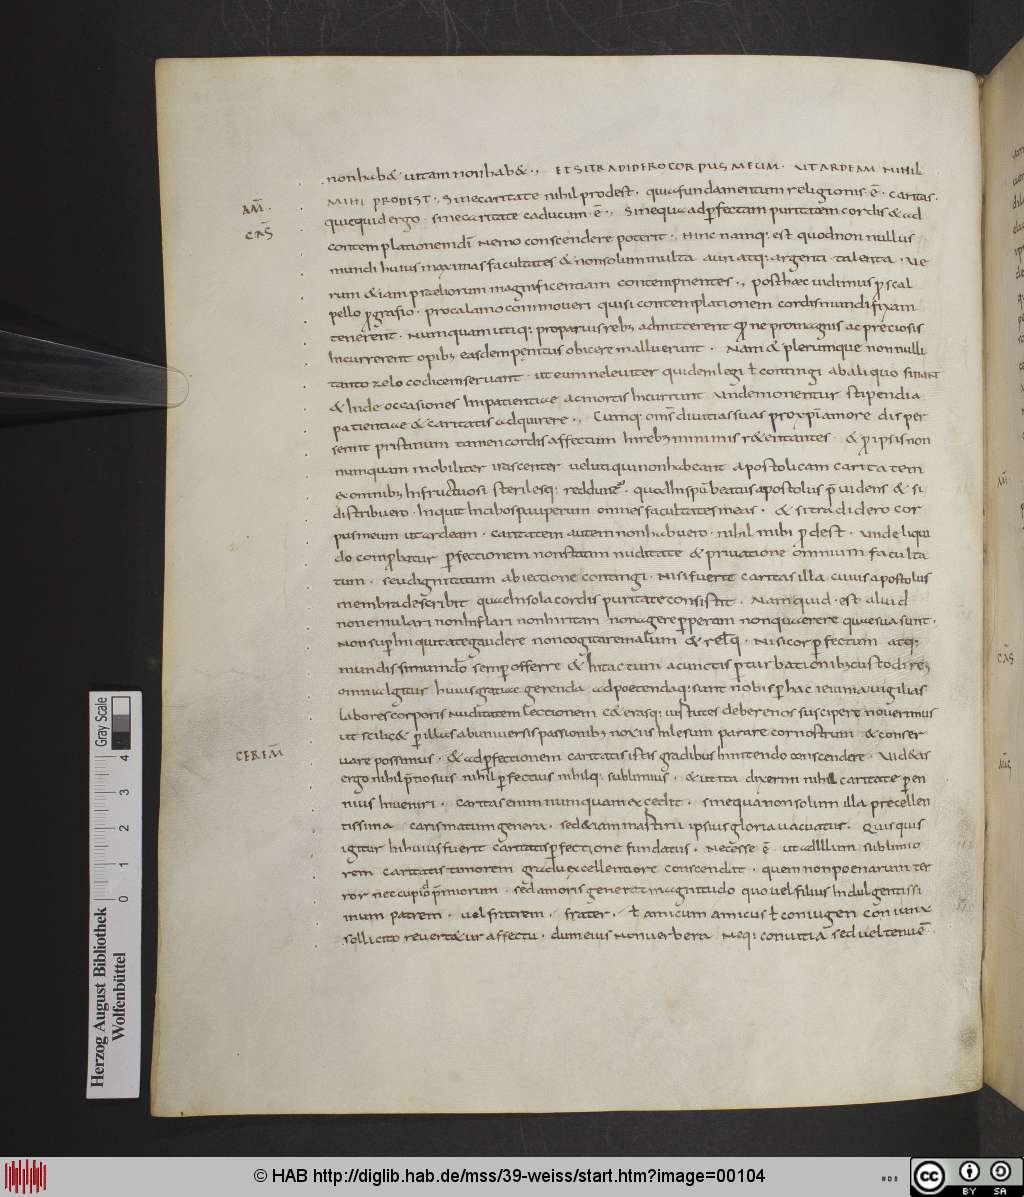 non hab& uitam non hab&., ET SI TRADIDERO CORPUS MEUM. UT ARDEAM NIHIL
AM̄.
MIHI PRODEST., Sine caritate nihil prodest. quia fundamentum religionis ē. caritas.
quicquid ergo. sine caritate caducum ē., Sine qua ad ꝑfectam puritatem cordis & ad
CAS̄
contemplationem dī nemo conscendere poterit. hinc namq; est quod non nullus
mundi huius maximas facultates & non solum multa auri atq; argenti talenta. ue
rum & iam praediorum magnificentiam contempnentes., post haec uidimus ꝑ scal
pello ꝑ grafio. pro calamo commoueri qui si contemplationem cordis mundi fixam
tenerent. numquam utiq; pro paruis reb; admitterent
incurrerent opib; eas d penitus obicere maluerunt. Nam & plerumque non nulli
tanto zelo codicem seruant. ut eum ne leuiter quidem legi ł contingi ab aliquo sinant
& inde occasiones inpatientiae ac mortis incurrunt unde monentur stipendia
patientiae & caritatis adquirere., Cumq; om̄s diuitias suas pro xp̄i amore disper
serint pristinum tamen cordis affectum in reb; minimis r&entantes. & ꝑ ipsis non
numquam mobiliter irascenter uelut qui non habeant apostolicam caritatem
ex omnib; infructuosi sterilesq; reddunt. quod in spū beatus apostolus p̄uidens & si
distribuero. inquit in cibos pauperum omnes facultates meas. & si tradidero cor
pus meum ut ardeam. caritatem autem non habuero. nihil mihi ꝓdest. unde liqui
do comprobatur ꝑfectionem non statim nuditate & priuatione omnium faculta
tum. seu dignitatum abiectione contingi. nisi fuerit caritas illa cuius apostolus
membra describit quae in sola cordis puritate consistit. Nam quid. est aliud
non emulari non inflari non inritari non agere perperam non quaerere quae sua sunt.
non suꝑ iniquitate gaudere non cogitare malum & relq̄. nisi cor ꝑfectum atq;
mundissimum dō semꝑ offerre & intactum a cunctis ꝑturbationib; custodire;
omnia igitur huius gratiae gerenda adpetendaq; sunt nobis ꝑ hac ieiunia uigilias
labores corporis nuditatem lectionem c&erasq; uirtutes debere nos suscipere nouerimus
ut scilic& ꝑ illas ab uniuersis passionib; noxiis inlesum parare cor nostrum & conser
CERIM̄
uare possimus. & ad ꝑfectionem caritatis istis gradibus innitendo conscendere. Uid&as
ergo nihil p̄tiosius nihil ꝑfectius nihilq; sublimius. & ut ita dixerim nihil caritate ꝑen
nius inueniri. caritas enim numquam excedit. sine qua non solum illa precellen
tissima carismatum genera. sed & iam martirii ipsius gloria uacuatur. Quisquis
igitur in huius fuerit caritatis ꝑfectione fundatus. necesse ē ut ad illum sublimio
rem caritatis timorem gradu excellentiore conscendat. quem non poenarum ter
ror nec cupido p̄miorum. sed amoris generat magnitudo quo uel filius indulgentissi
mum patrem. uel fratrem. frater. ł amicum amicus ł coniugem coniunx
sollicito reueretur affectu. dum eius non uerbera neq; conuitia sed uel tenuē.
Herzog August Bibliothek
Wolfenbüttel
Gray Scale
0 1 2 3 4
© HAB http://diglib.hab.de/mss/39-weiss/start.htm?image=00104
cc BY SA